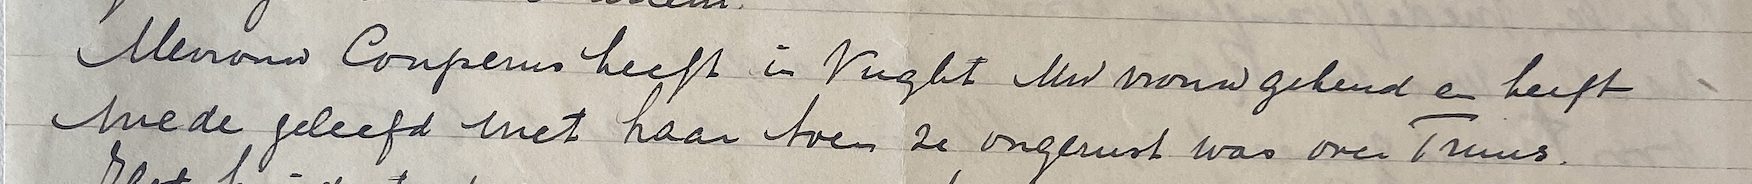 Mevrouw Couperus heeft in Vught Uw vrouw gekend en heeft
mede geleefd met haar toen ze ongerust was over Truus.